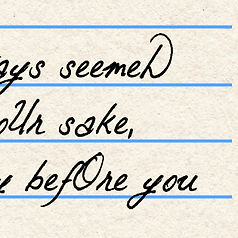 ays seemeD
oUr sake,
befOre you